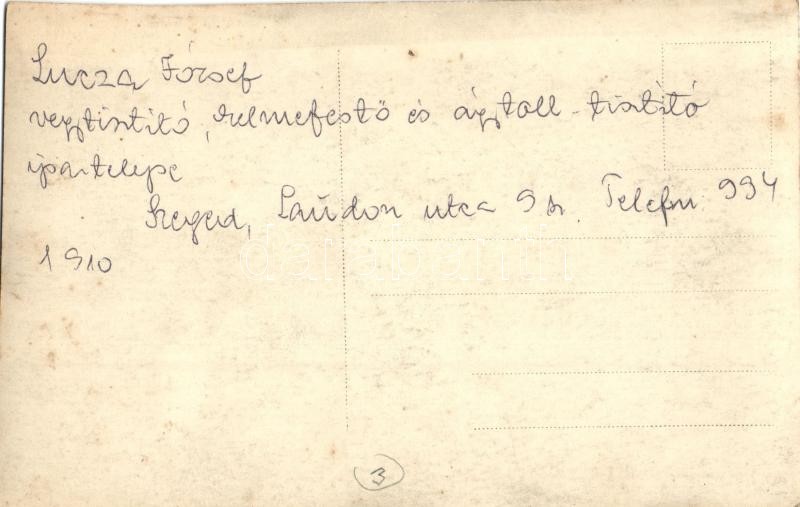 Lucza József
vegytisztító, selmefestő és ágytoll-tisztító
ipartelepe
Szeged, Laudon utca 9 sz. Telefon 994
1910
darabanth
3